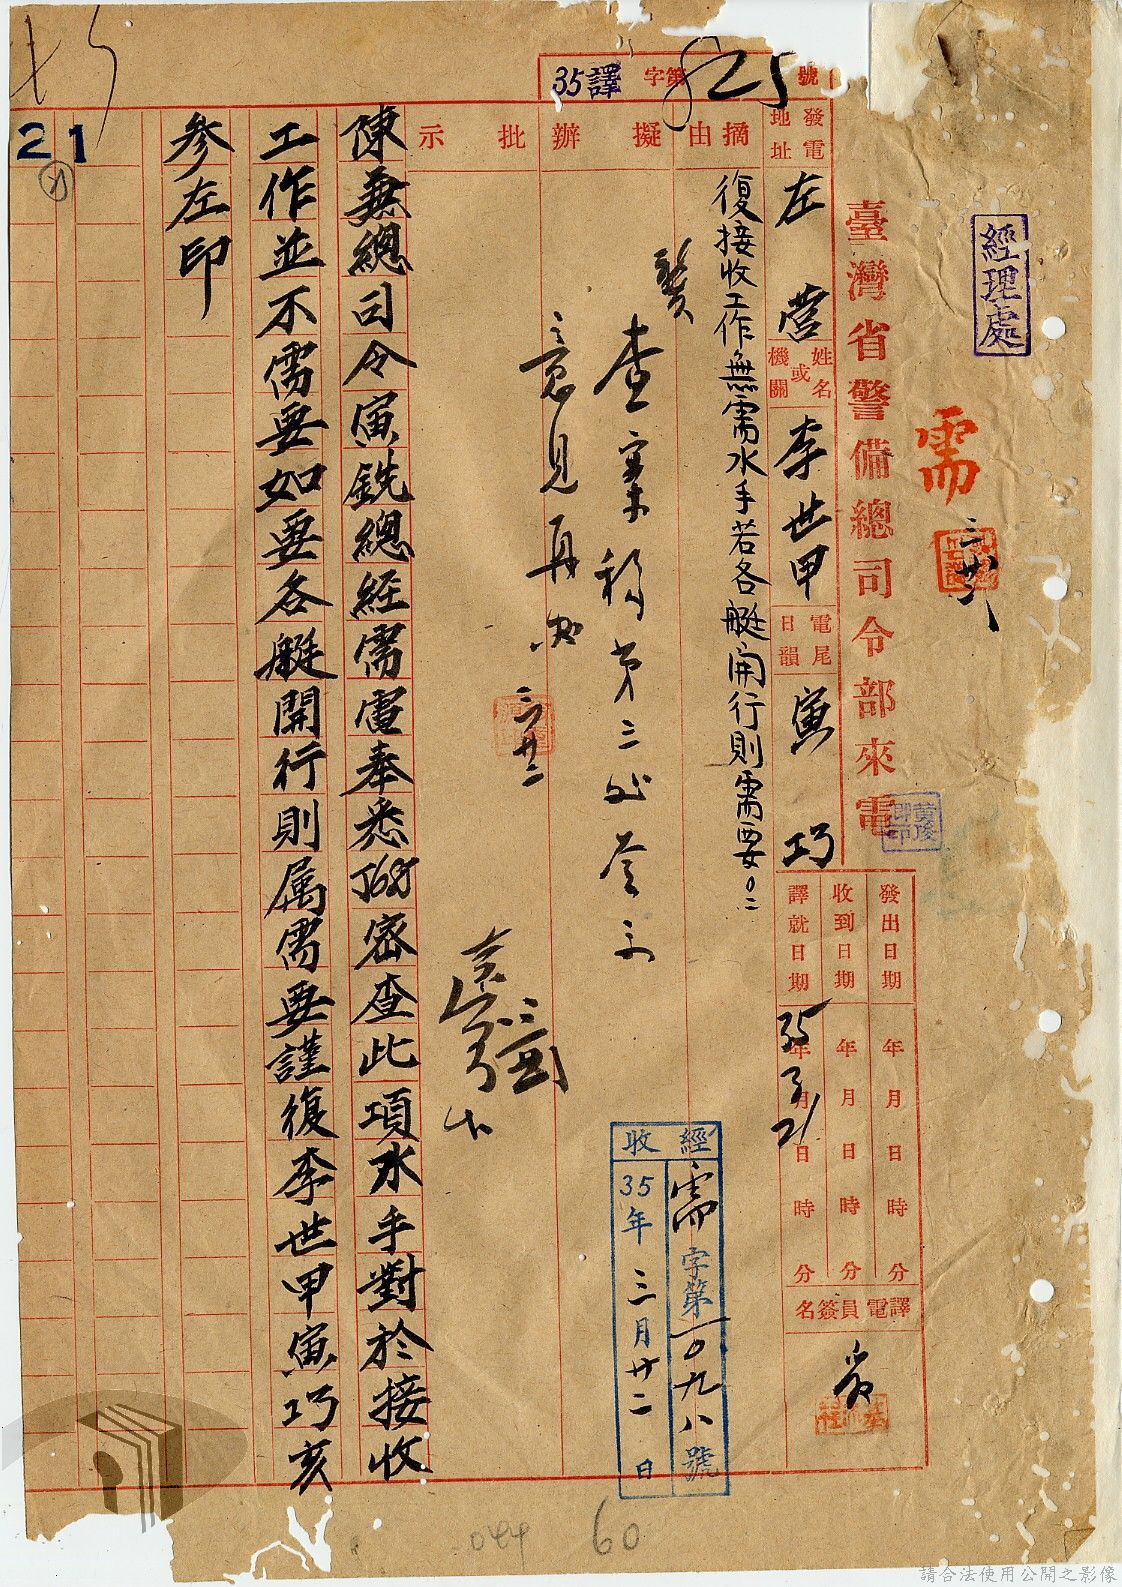 經理處
需
三廿二
臺灣省警備總司令部來電
35譯字第825號
發電地址
左營
姓名或機關
李世甲
電尾日韻
寅巧
發出日期 年月日時分
收到日期 年月日時分
譯就日期 35年3月21日時分
譯電員簽名
摘由
復接收工作無需水手若各艇開行則需要。
擬辦
查案移第三處簽註
意見再
三廿二
批示
經需字第一〇九八號
收35年三月廿二日
陳兼總司令寅銑總經需電奉悉密查此項水手對於接收
工作並不需要如要各艇開行則屬需要謹復李世甲寅巧亥
參左印
21
60
044
請合法使用公開之影像